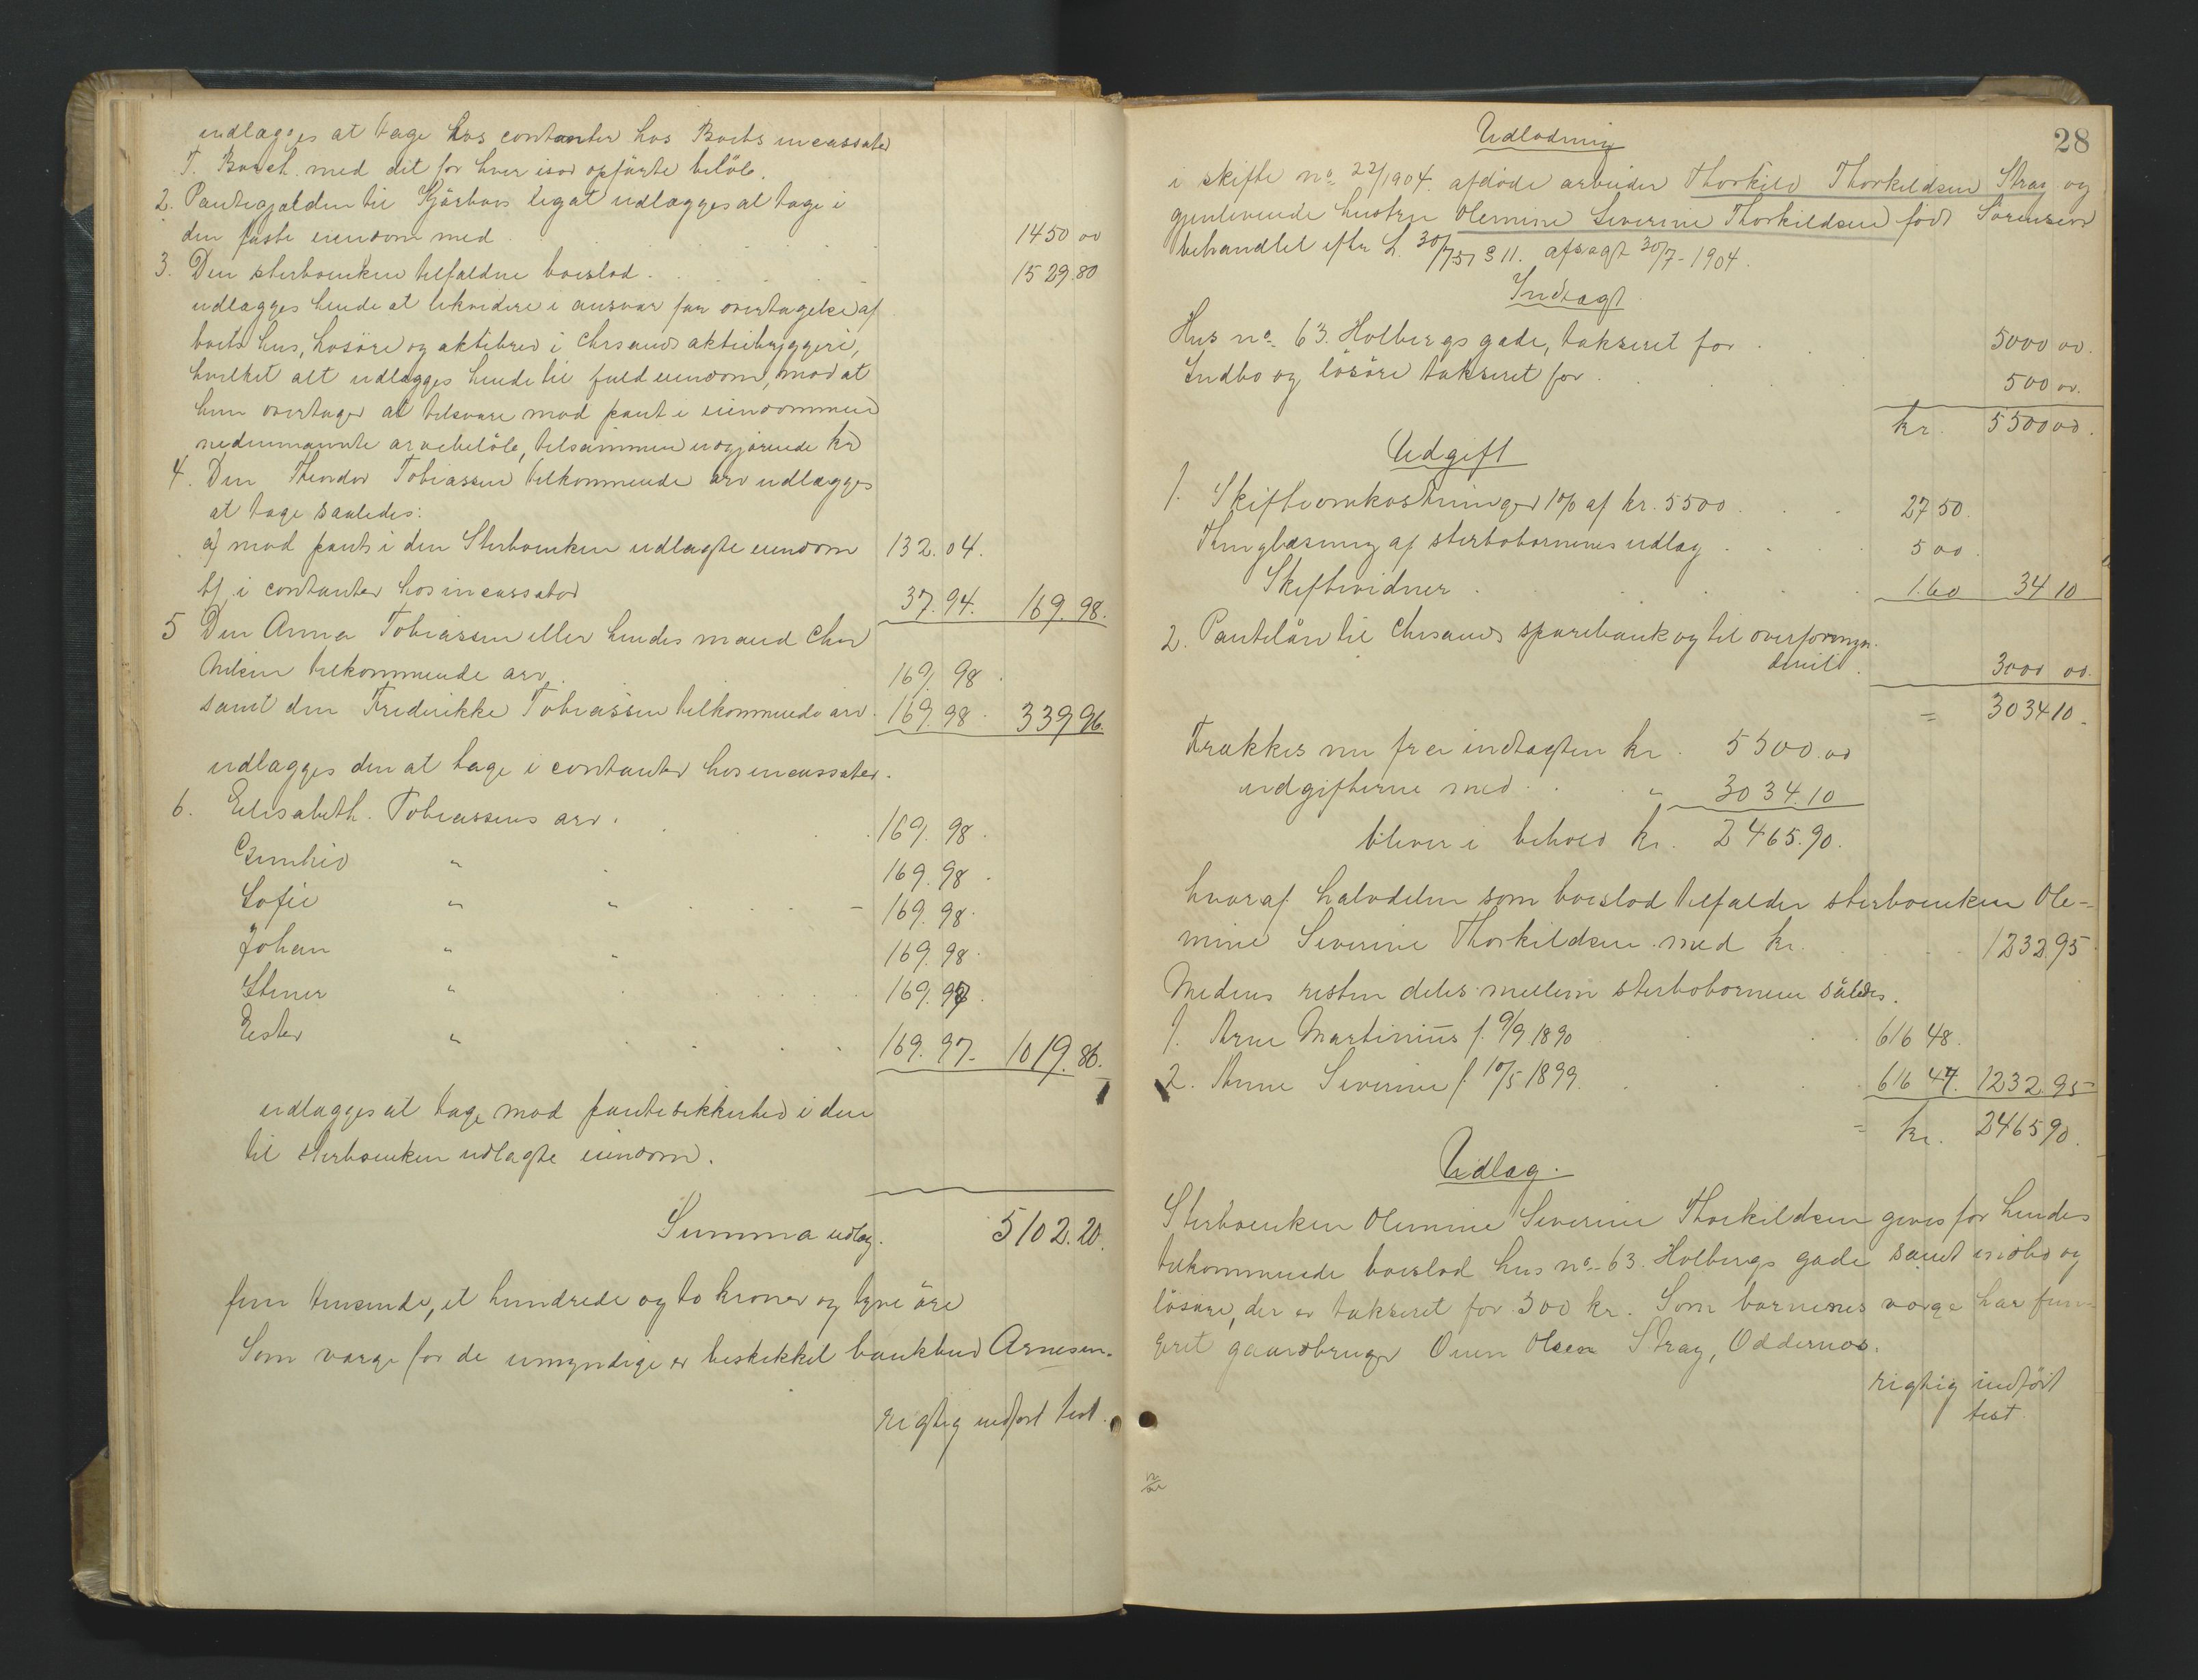 udlægges at tage hos contanter hos Boets incassator
T. Bosch med det for hver især opførte beløb.
2. Pantegjælden til Kjørboes legat udlægges at tage i
den faste eiendom med 1450 00
3. Den sterboenken tilfaldne boeslod 1529.80
udlægges hende at likvidere i ansvar for overtagelse af
boets hus, løsøre og aktiebrev i Chrsands aktiebryggeri,
hvilket alt udlægges hende til fuld eiendom, mod at
hun overtager at tilsvare mod pant i eiendommen
nedennævnte arvebeløb, tilsammen udgjørende kr
4. Den Theodor Tobiassen tilkommende arv udlægges
at tage saaledes:
a) mod pant i den Sterboenken udlagte eiendom 132.04.
b) i contanter hos incassator 37.94. 169.98.
5 Den Anna Tobiassen eller hendes mand Chr
Nilsen tilkommende arv 169.98
samt den Frederikke Tobiassen tilkommende arv 169.98 339 96.
udlægges dem at tage i contanter hos incassator.
6. Elisabeth Tobiassens arv. 169.98
Gunhild " 169.98
Sofie " " 169.98
Johan " " 169.98
Stener " 169.97
Ester " 169.97 1019.86.
udlægges at tage mod pantesikkerhed i den
til sterboenken udlagte eiendom.
Summa udlæg. 5102.20.
fem tusende, et hundrede og to kroner og tyve øre
Som værge for de umyndige er beskikket bankbud Arnesen.
Rigtig indført test.
28
Udlodning
i skifte no 22/1904. afdøde arbeider Thorkild Thorkildsen Stray og
gjenlevende hustru Olemine Severine Thorkildsen født Sørensen
behandlet efter L. 30/7 51 § 11. afsagt 30/7-1904.
Indtægt
Hus no 63 Holbergs gade, takseret for 5000 00.
Indbo og løsøre takseret for 500 00.
kr. 5500 00.
Udgift
1. Skifteomkostninger 1/2% af kr. 5500 27 50.
Thinglæsning af sterbobørnenes udlæg 5 00
Skiftevidner 1.60 34 10
2. Pantelån til Chrsands sparebank og til overformyn.
deriet 3000 00.
= 3034 10.
Trækkes nu fra indtægten kr. 5500.00
udgifterne med " 3034.10
bliver i behold kr. 2465.90.
hvoraf halvdelen som boeslod tilfalder sterboenken Ole-
mine Severine Thorkildsen med kr. 1232.95
Medens resten deles mellem sterbobørnene således.
1. Arne Martinius f. 9/9 1890 616 48.
2. Anne Severine f. 10/5 1899. 616 47. 1232.95
= kr. 2465 90.
Udlæg.
Sterboenken Olemine Severine Thorkildsen gives for hendes
tilkommende boeslod hus no 63 Holbergs gade samt indbo og
løsøre, der er takseret for 500 kr. Som børnenes værge har fun-
geret gaardbruger Ouen Olsen Stray, Oddernes.
Rigtig indført
test.